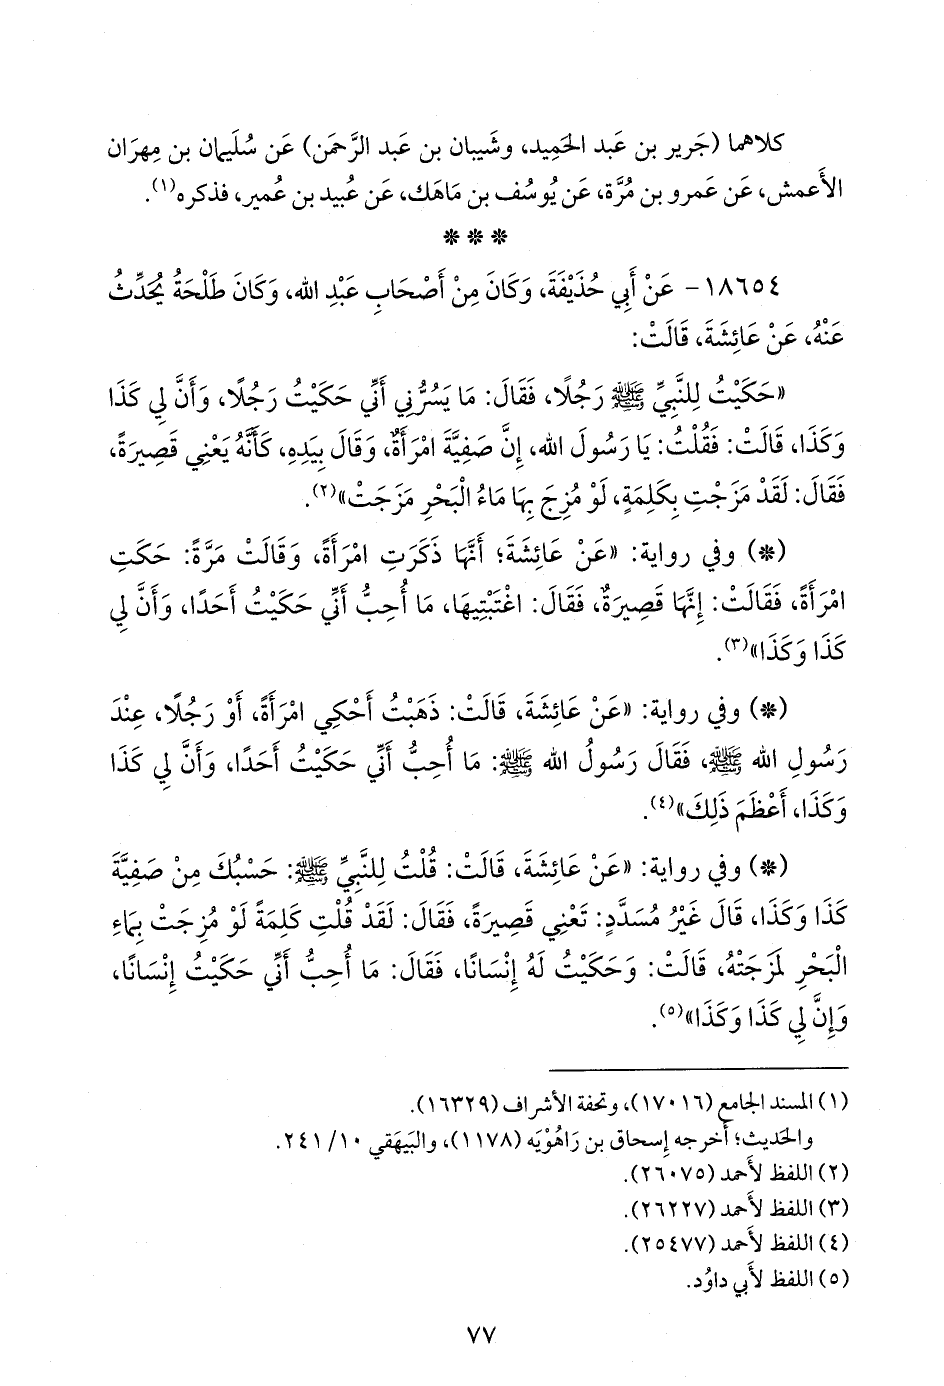 كلاهما (جَرير بن عَبد الحَمِيد، وشَيبان بن عَبد الرَّحمَن) عَن سُلَيمان بن مِهرَان
الأَعمش، عَن عَمرو بن مُرَّة، عَن يُوسُف بن مَاهَك، عَن عُبيد بن عُمير، فذكره(١).
* * *
١٨٦٥٤- عَنْ أَبِي حُذَيْفَةَ، وَكَانَ مِنْ أَصْحَابِ عَبْدِ الله، وَكَانَ طَلْحَةُ يُحَدِّثُ
عَنْهُ، عَنْ عَائِشَةَ، قَالَتْ:
«حَكَيْتُ لِلنَّبِيِّ ﷺ رَجُلًا، فَقَالَ: مَا يَسُرُّنِي أَنِّي حَكَيْتُ رَجُلًا، وَأَنَّ لِي كَذَا
وَكَذَا، قَالَتْ: فَقُلْتُ: يَا رَسُولَ الله، إِنَّ صَفِيَّةَ امْرَأَةٌ، وَقَالَ بِيَدِهِ، كَأَنَّهُ يَعْنِي قَصِيرَةً،
فَقَالَ: لَقَدْ مَزَجْتِ بِكَلِمَةٍ، لَوْ مُزِجَ بِهَا مَاءُ الْبَحْرِ مَزَجَتْ»(٢).
(*) وفي رواية: «عَنْ عَائِشَةَ؛ أَنَّهَا ذَكَرَتِ امْرَأَةً، وَقَالَتْ مَرَّةً: حَكَتِ
امْرَأَةً، فَقَالَتْ: إِنَّهَا قَصِيرَةٌ، فَقَالَ: اغْتَبْتِيهَا، مَا أُحِبُّ أَنِّي حَكَيْتُ أَحَدًا، وَأَنَّ لِي
كَذَا وَكَذَا»(٣).
(*) وفي رواية: «عَنْ عَائِشَةَ، قَالَتْ: ذَهَبْتُ أَحْكِي امْرَأَةً، أَوْ رَجُلًا، عِنْدَ
رَسُولِ الله ﷺ، فَقَالَ رَسُولُ الله ﷺ: مَا أُحِبُّ أَنِّي حَكَيْتُ أَحَدًا، وَأَنَّ لِي كَذَا
وَكَذَا، أَعْظَمَ ذَلِكَ»(٤).
(*) وفي رواية: «عَنْ عَائِشَةَ، قَالَتْ: قُلْتُ لِلنَّبِيِّ ﷺ: حَسْبُكَ مِنْ صَفِيَّةَ
كَذَا وَكَذَا، قَالَ غَيْرُ مُسَدَّدٍ: تَعْنِي قَصِيرَةً، فَقَالَ: لَقَدْ قُلْتِ كَلِمَةً لَوْ مُزِجَتْ بِمَاءِ
الْبَحْرِ لَمَزَجَتْهُ، قَالَتْ: وَحَكَيْتُ لَهُ إِنْسَانًا، فَقَالَ: مَا أُحِبُّ أَنِّي حَكَيْتُ إِنْسَانًا،
وَإِنَّ لِي كَذَا وَكَذَا»(٥).
(١) المسند الجامع (١٧٠١٦)، وتحفة الأشراف (١٦٣٢٩).
والحَديث؛ أَخرجه إِسحاق بن رَاهُوْيَه (١١٧٨)، والبَيهَقي ١٠/ ٢٤١.
(٢) اللفظ لأَحمد (٢٦٠٧٥).
(٣) اللفظ لأَحمد (٢٦٢٢٧).
(٤) اللفظ لأَحمد (٢٥٤٧٧).
(٥) اللفظ لأَبي داوُد.
٧٧